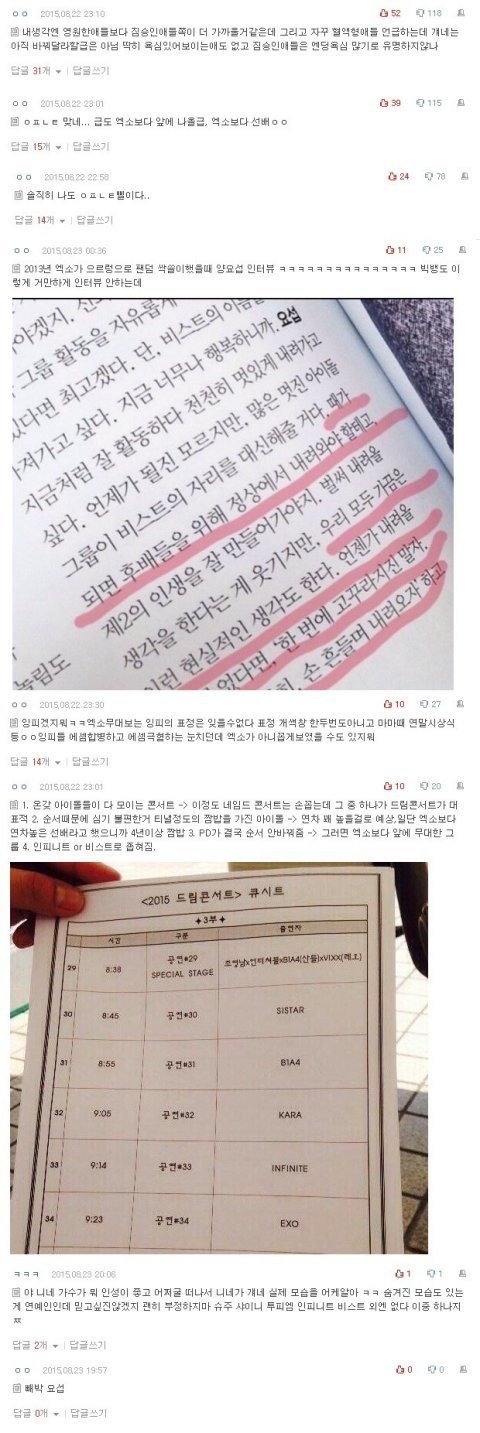 ㅇㅇ 2015.08.22 23:10 52 118
내생각엔 영원한애들보다 짐승인애들쪽이 더 가까울거같은데 그리고 자꾸 혈액형애들 언급하는데 걔네는
아직 바꿔달라할급은 아님 딱히 욕심있어보이는애도 없고 짐승인애들은 엔딩욕심 많기로 유명하지않나
답글 31개 답글쓰기
ㅇㅇ 2015.08.22 23:01 39 115
ㅇㅍㄴㅌ 맞네... 급도 엑소보다 앞에 나올급, 엑소보다 선배ㅇㅇ
답글 15개 답글쓰기
ㅇㅇ 2015.08.22 22:58 24 78
솔직히 나도 ㅇㅍㄴㅌ삘이다..
답글 14개 답글쓰기
ㅇㅇ 2015.08.23 00:36 11 25
2013년 엑소가 으르렁으로 팬덤 싹쓸이했을때 양요섭 인터뷰 ㅋㅋㅋㅋㅋㅋㅋㅋㅋㅋㅋㅋㅋㅋㅋ 빅뱅도 이
렇게 거만하게 인터뷰 안하는데
그룹 활동을 자유롭게
있다면 최고겠다. 단, 비스트의 이름을
가져가고 싶다. 지금 너무나 행복하니까. 요섭
지금처럼 잘 활동하다 천천히 멋있게 내려가고
싶다. 언제가 될진 모르지만, 많은 멋진 아이돌
그룹이 비스트의 자리를 대신해줄 거다. 때가
되면 후배들을 위해 정상에서 내려와야 할테고,
제2의 인생을 잘 만들어가야지. 벌써 내려올
생각을 한다는 게 웃기지만, 우리 모두 가끔은
이런 현실적인 생각도 한다. 언젠가 내려올
었다면, '한 번에 고꾸라지진 말자,
히, 손 흔들며 내려오자' 하고
놀림도
ㅇㅇ 2015.08.22 23:30 10 27
잉피겠지뭐ㅋㅋ엑소무대보는 잉피의 표정은 잊을수없다 표정 개썩창 한두번도아니고 마마때 연말시상식
등ㅇㅇ잉피들 에셈합병하고 에셈극혐하는 눈치던데 엑소가 아니꼽게보였을 수도 있지뭐
답글 14개 답글쓰기
ㅇㅇ 2015.08.22 23:01 10 20
1. 온갖 아이돌들이 다 모이는 콘서트 -> 이정도 네임드 콘서트는 손꼽는데 그 중 하나가 드림콘서트가 대
표적 2. 순서때문에 심기 불편한거 티낼정도의 짬밥을 가진 아이돌 -> 연차 꽤 높을걸로 예상,일단 엑소보다
연차높은 선배라고 했으니까 4년이상 짬밥 3. PD가 결국 순서 안바꿔줌 -> 그러면 엑소보다 앞에 무대한 그
룹 4. 인피니트 or 비스트로 좁혀짐.
<2015 드림콘서트> 큐시트
✦3부✦
시간 구분 출연자
29 8:38 공연#29 SPECIAL STAGE
30 8:45 공연#30 SISTAR
31 8:55 공연#31 B1A4
32 9:05 공연#32 KARA
33 9:14 공연#33 INFINITE
34 9:23 공연#34 EXO
ㅋㅋㅋ 2015.08.23 20:06 1 1
야 니네 가수가 뭐 인성이 좋고 어쩌굴 떠나서 니네가 걔네 실제 모습을 어케알아 ㅋㅋ 숨겨진 모습도 있는
게 연예인인데 믿고싶진않겠지 괜히 부정하지마 슈주 샤이니 투피엠 인피니트 비스트 외엔 없다 이중 하나지
ㅉ
답글 2개 답글쓰기
ㅇㅇ 2015.08.23 19:57 0 0
빼박 요섭
답글 0개 답글쓰기